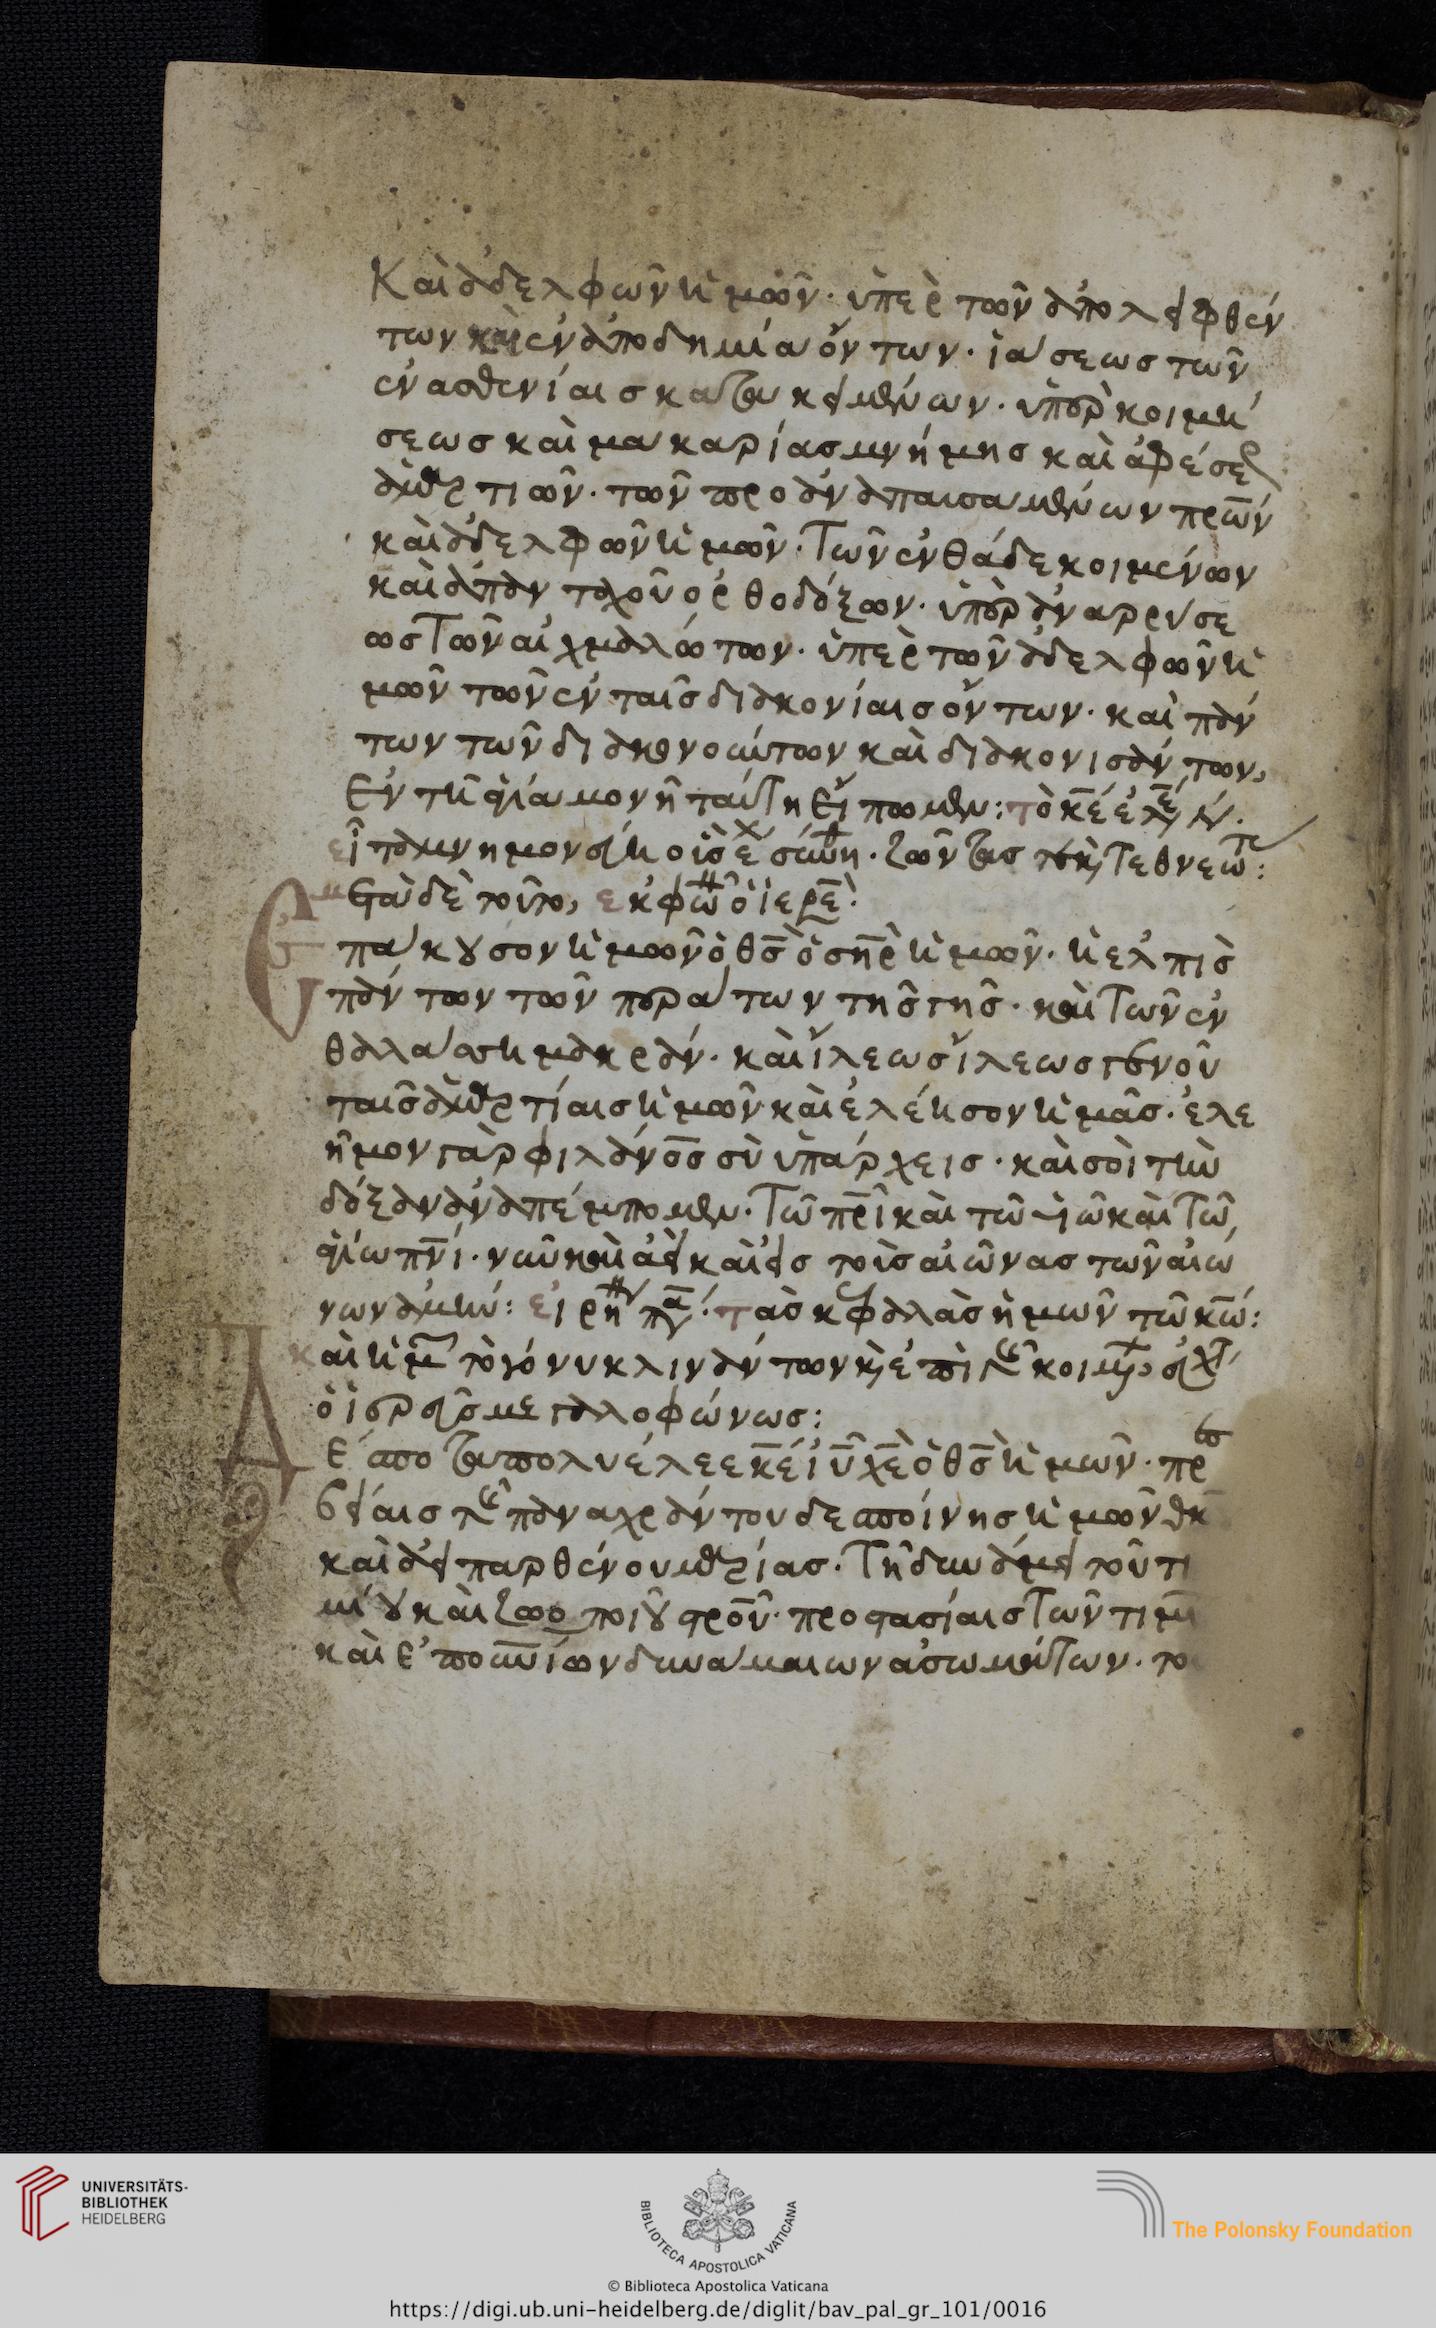 Καὶ ἀδελφῶν ἡμῶν· ὑπὲρ τῶν ἀπολειφθέν
των καὶ ἐν ἀποδημία ὄντων· ἰάσεως τῶν
ἐν ασθενίαις κατακειμένων· ὑπὲρ κοιμή
σεως καὶ μακαρίας μνήμης καὶ ἀφέσε
ἁμαρτιῶν· τῶν προαναπαυσαμένων πρων
καὶ ἀδελφῶν ἡμῶν· Τῶν ἐνθάδε κοιμένων
καὶ ἁπανταχοῦ ὀρθοδόξων· ὑπὲρ ἀναρρύσε
ως Τῶν αἰχμαλώτων· ὑπὲρ τῶν ἀδελφῶν ἡ
μῶν τῶν ἐν ταῖς διακονίαις ὄντων· καὶ πάν
των τῶν διακονούντων καὶ διακονισάντων,
Ἐν τῆ ἁγία μονῆ ταύτη εἴπωμεν: τὸ κε ἐλέη
Ἐπάκουσον ἡμῶν ὁ θς ὁ σηρ ἡμῶν· ἡ ἐλπὶς
πάντων τῶν περάτων τῆς γῆς· καὶ Τῶν ἐν
θαλάσση μακράν· καὶ ἵλεως ἵλεως γενοῦ
ταῖς ἁμαρτίαις ἡμῶν καὶ ἐλέησον ἡμᾶς· ἐλε
ῆμον γὰρ φιλανος σὺ ὑπάρχεις· καὶ σοὶ τὴν
δόξαν ἀναπέμπομεν· Τῶ πρὶ καὶ τῶ υἱῶ καὶ Τῶ
ἁγίω πνι· νῦν καὶ ἀεὶ καὶ εἰς τοὺς αἰῶνας τῶν αἰώ
νων ἀμήν: εἰρη πα: τὰς κεφαλὰς ἡμῶν τῶ κω:
ὁ ἱερεὺς μεγαλοφώνως:
Δέσποτα πολυέλεε κε ιυ χε ὁ θς ἡμῶν· πρ
βείαις τῆς παναχράντου δεσποίνης ἡμῶν θκ
καὶ ἀειπαρθένου μαρίας· Τῆ δυνάμει τοῦ τι
μίου καὶ ζωοποιοῦ στροῦ· προστασίαις Τῶν τιμι
καὶ ἐπουνίων δυνάμαιων ἀσωμάτων· το
UNIVERSITÄTS-
BIBLIOTHEK
HEIDELBERG
BIBLIOTECA APOSTOLICA VATICANA
The Polonsky Foundation
© Biblioteca Apostolica Vaticana
https://digi.ub.uni-heidelberg.de/diglit/bav_pal_gr_101/0016